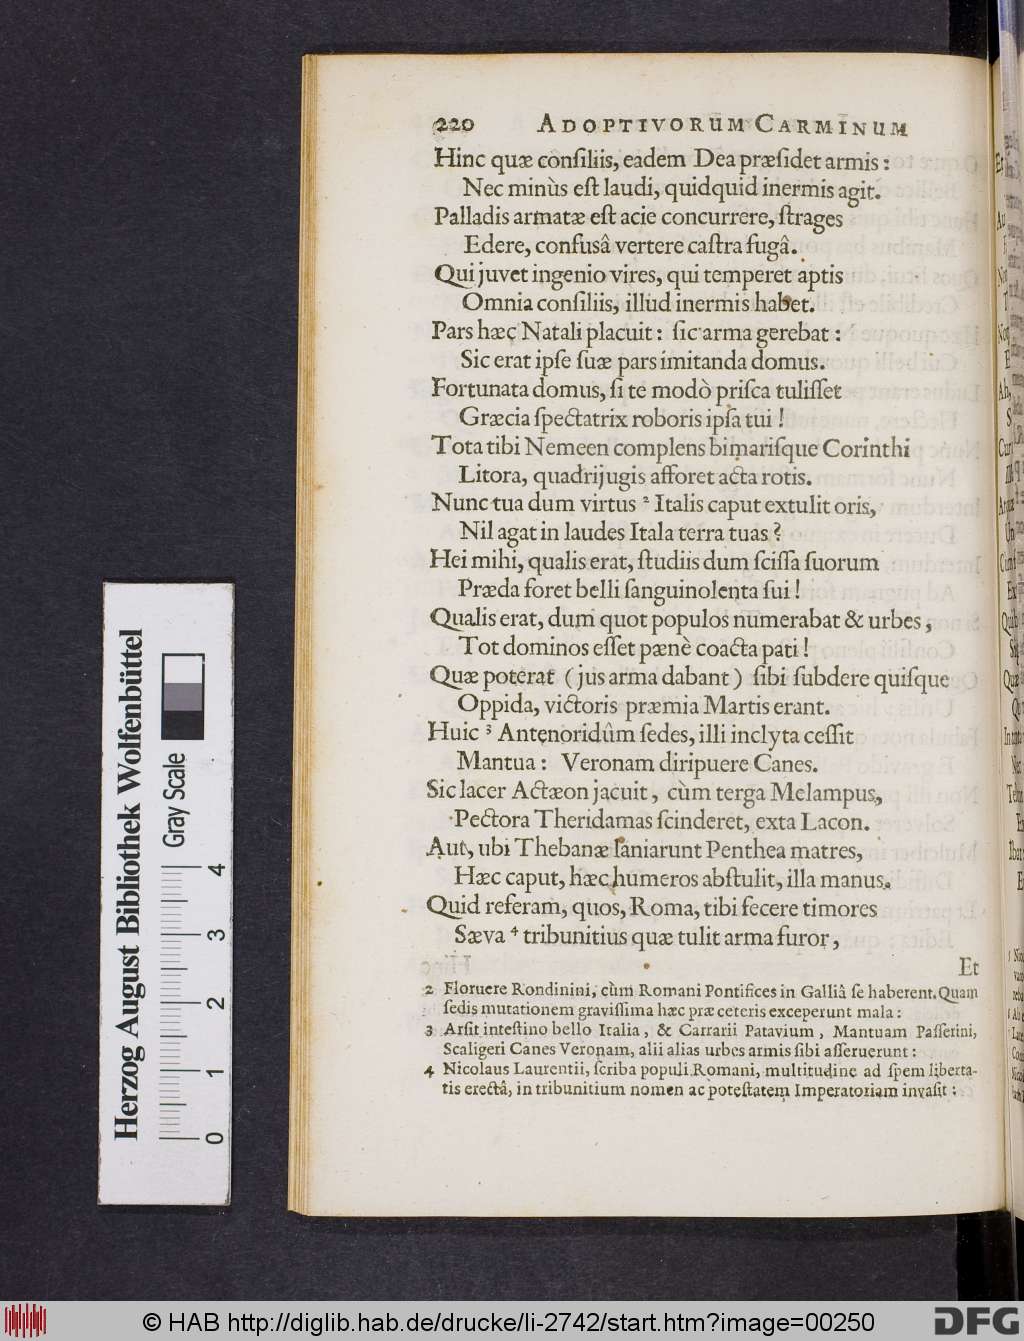 220 ADOPTIVORUM CARMINUM
Hinc quæ conſiliis, eadem Dea præſidet armis:
Nec minùs eſt laudi, quidquid inermis agit.
Palladis armatæ eſt acie concurrere, ſtrages
Edere, confusâ vertere caſtra fugâ.
Qui juvet ingenio vires, qui temperet aptis
Omnia conſiliis, illud inermis habet.
Pars hæc Natali placuit: ſic arma gerebat:
Sic erat ipſe ſuæ pars imitanda domus.
Fortunata domus, ſi te modò priſca tuliſſet
Græcia ſpectatrix roboris ipſa tui!
Tota tibi Nemeen complens bimariſque Corinthi
Litora, quadrijugis afforet acta rotis.
Nunc tua dum virtus ² Italis caput extulit oris,
Nil agat in laudes Itala terra tuas?
Hei mihi, qualis erat, ſtudiis dum ſciſſa ſuorum
Præda foret belli ſanguinolenta ſui!
Qualis erat, dum quot populos numerabat & urbes,
Tot dominos eſſet pænè coacta pati!
Quæ poterat (jus arma dabant) ſibi ſubdere quiſque
Oppida, victoris præmia Martis erant.
Huic ³ Antenoridûm ſedes, illi inclyta ceſſit
Mantua: Veronam diripuere Canes.
Sic lacer Actæon jacuit, cùm terga Melampus,
Pectora Theridamas ſcinderet, exta Lacon.
Aut, ubi Thebanæ laniarunt Penthea matres,
Hæc caput, hæc humeros abſtulit, illa manus.
Quid referam, quos, Roma, tibi fecere timores
Sæva ⁴ tribunitius quæ tulit arma furor,
Et
2 Floruere Rondinini, cùm Romani Pontifices in Galliâ ſe haberent. Quam
ſedis mutationem graviſſima hæc præ ceteris exceperunt mala:
3 Arſit inteſtino bello Italia, & Carrarii Patavium, Mantuam Paſſerini,
Scaligeri Canes Veronam, alii alias urbes armis ſibi aſſeruerunt:
4 Nicolaus Laurentii, ſcriba populi Romani, multitudine ad ſpem liberta-
tis erectâ, in tribunitium nomen ac poteſtatem Imperatoriam invaſit:
Herzog August Bibliothek Wolfenbüttel
Gray Scale
0 1 2 3 4
© HAB http://diglib.hab.de/drucke/li-2742/start.htm?image=00250
DFG